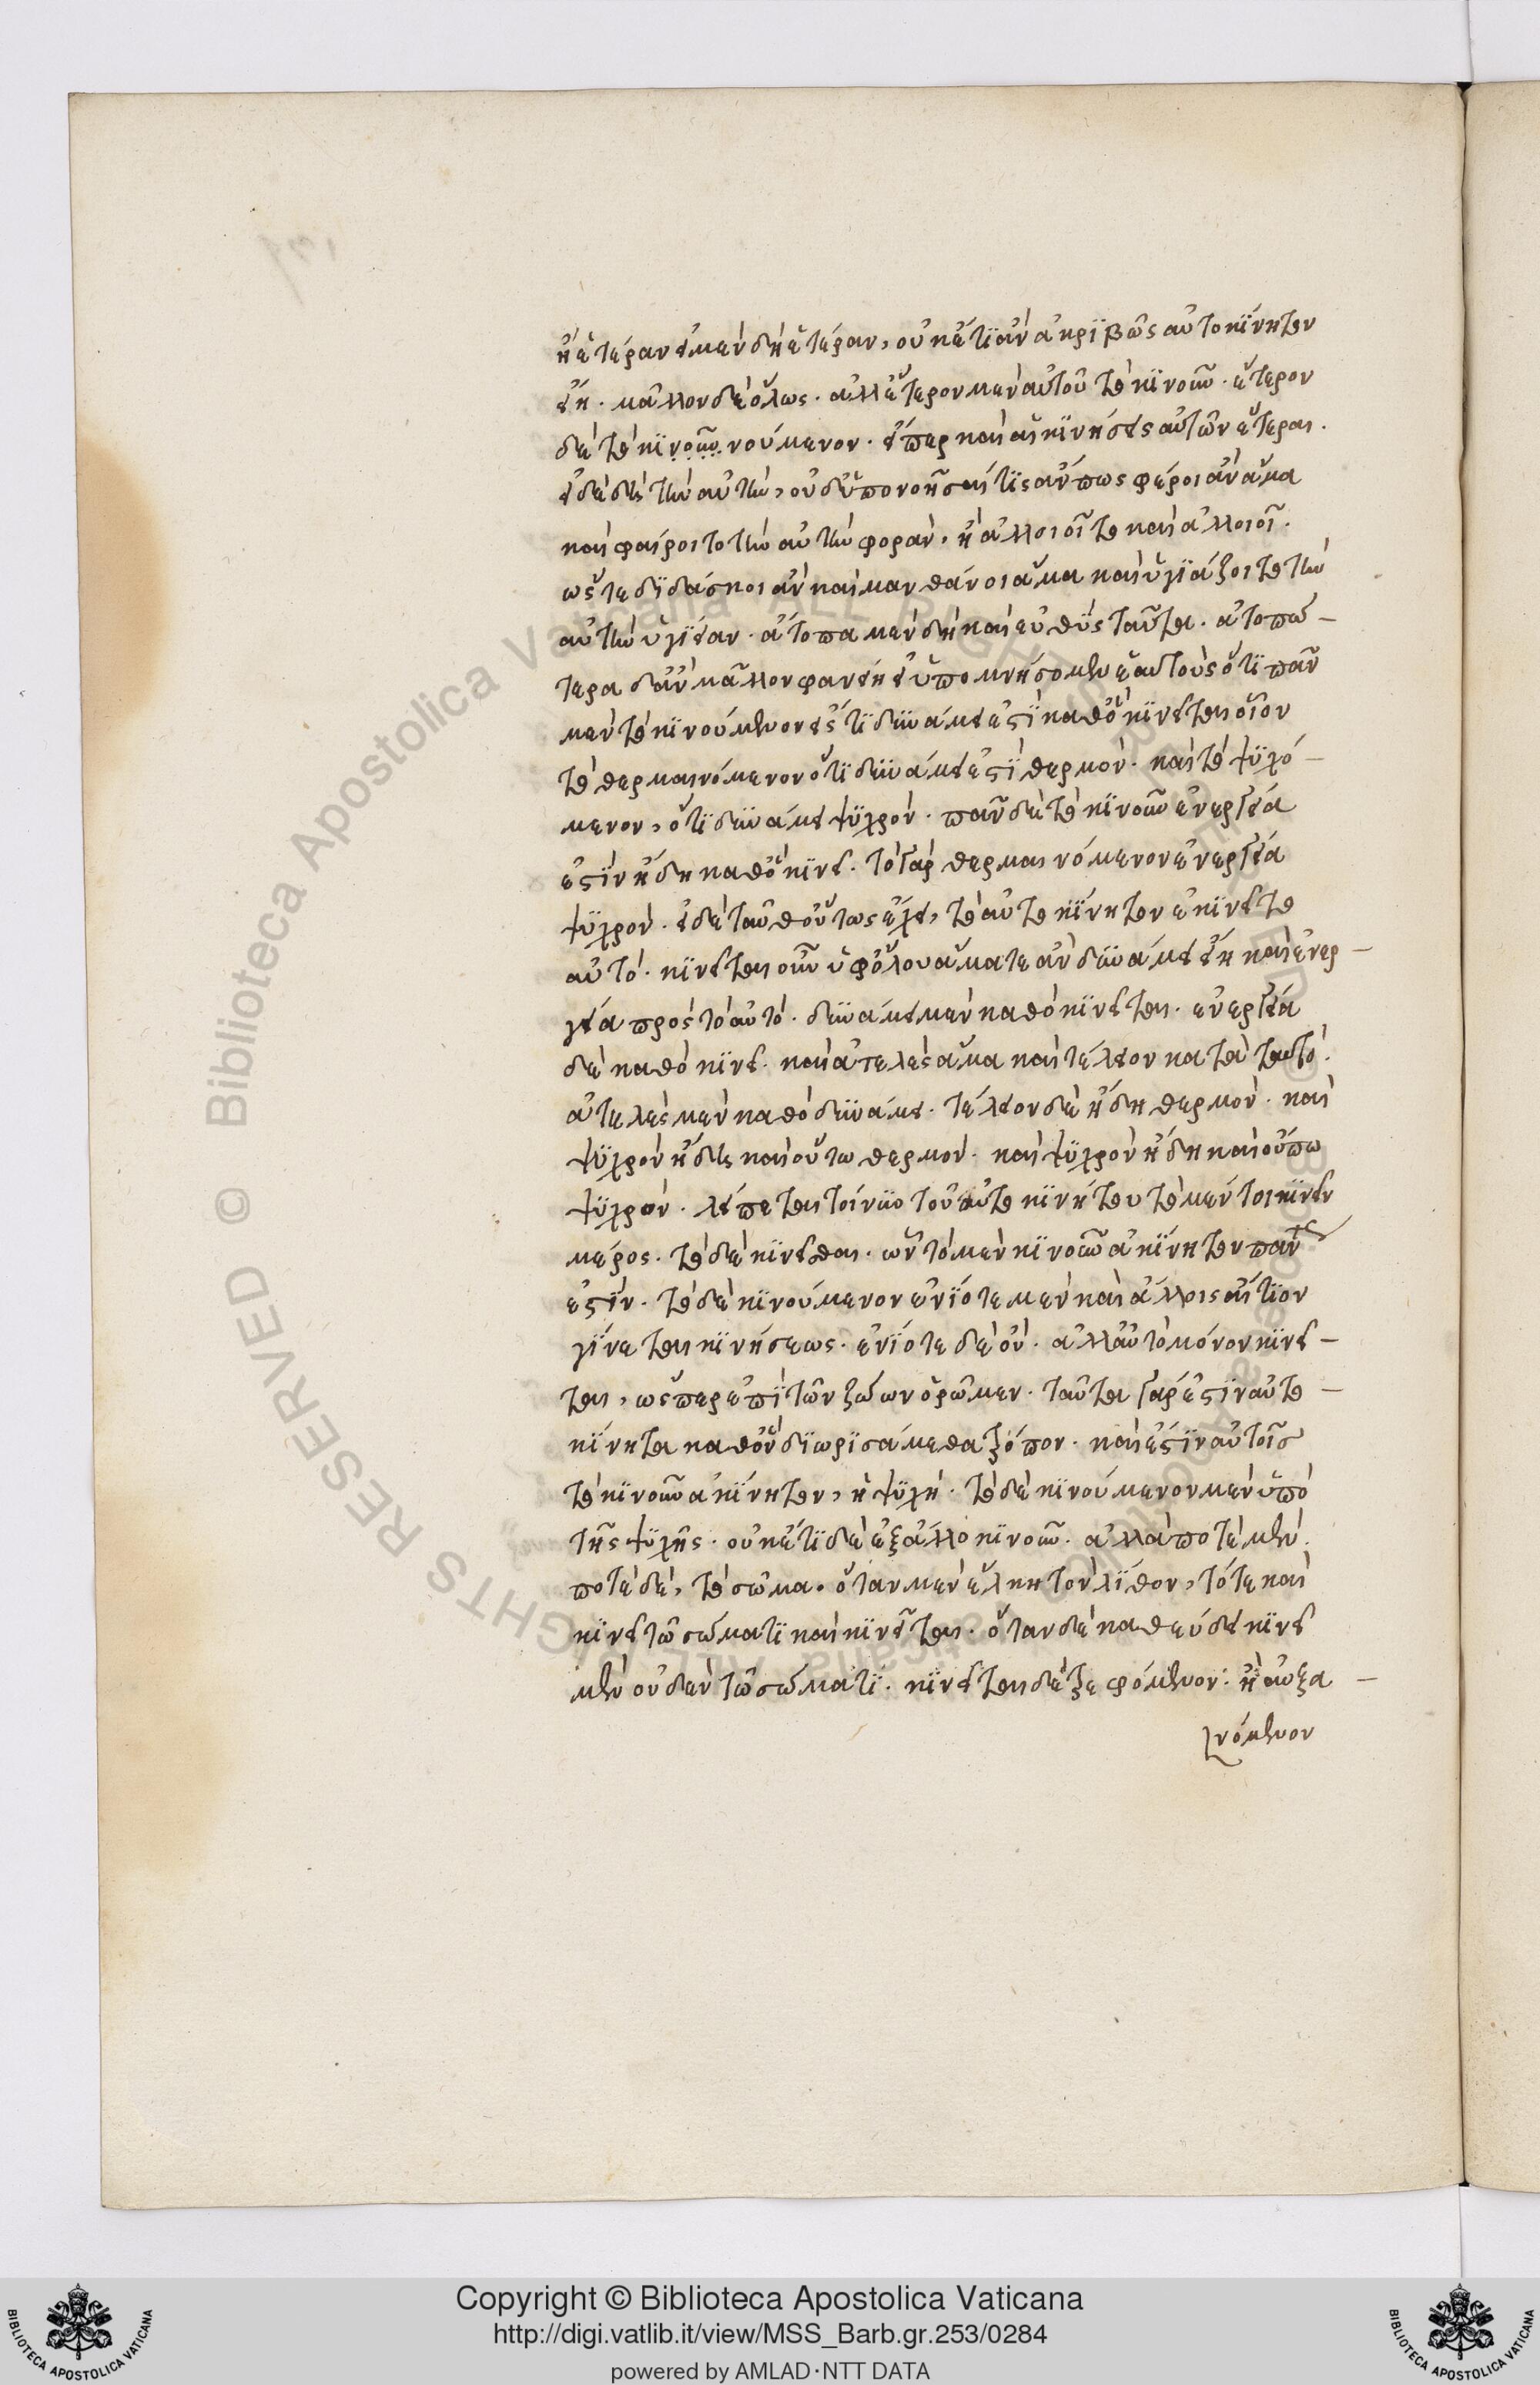 ἢ ἑτέραν εἰ μὲν δὴ ἑτέραν, οὐκέτι ἂν ἀκριβῶς αὐτοκίνητον
εἴη. μᾶλλον δὲ ὅλως. ἀλλ' ἕτερον μὲν αὐτοῦ τὸ κινοῦν. ἕτερον
δὲ τὸ κινοῦν νούμενον. εἴπερ καὶ αἱ κινήσεις αὐτῶν ἕτεραι.
εἰ δὲ δὴ τὴν αὐτὴν, οὐδ' ὑπονοῆσαί τις ἂν πως φέροι ἂν ἅμα
καὶ φαίροιτο τὴν αὐτὴν φορὰν. ἢ ἀλλοιοῖ τὸ καὶ ἀλλοιοῖ.
ὥστε διδάσκοι ἂν καὶ μανθάνοι ἅμα καὶ ὑγιάζοιτο τὴν
αὐτὴν ὑγίειαν. ἄτοπα μὲν δὴ καὶ εὐθὺς ταῦτα. ἀτοπώ-
τερα δ' ἂν μᾶλλον φανείη εἰ ὑπομνήσομεν ἑαυτοὺς ὅτι πᾶν
μὲν τὸ κινούμενον ἔτι δυνάμει ἐστὶ καθὸ κινεῖται οἷον
τὸ θερμαινόμενον ὅτι δυνάμει ἐστὶ θερμόν. καὶ τὸ ψυχό-
μενον, ὅτι δυνάμει ψυχρόν. πᾶν δὲ τὸ κινοῦν ἐνεργείᾳ
ἐστὶν ἤδη καθὸ κινεῖ. τὸ γὰρ θερμαινόμενον ἐνεργείᾳ
ψυχρόν. εἰ δὲ ταῦθ' οὕτως ἔχει, τὸ αὐτοκίνητον ἐκινεῖτο
αὐτό. κινεῖται οὖν ὑφ' ὅλου ἅμα τε ἂν δυνάμει εἴη καὶ ἐνερ-
γείᾳ πρὸς τὸ αὐτό. δυνάμει μὲν καθὸ κινεῖται. ἐνεργείᾳ
δὲ καθὸ κινεῖ. καὶ ἀτελὲς ἅμα καὶ τέλειον κατὰ ταυτό.
ἀτελὲς μὲν καθὸ δυνάμει. τέλειον δὲ ἤδη θερμόν. καὶ
ψυχρὸν ἤδη καὶ οὕτω θερμόν. καὶ ψυχρὸν ἤδη καὶ οὔπω
ψυχρόν. λείπεται τοίνυν τοῦ αὐτοκινήτου τὸ μέν τοι κινεῖν
μέρος. τὸ δὲ κινεῖσθαι. ὧν τὸ μὲν κινοῦν ἀκίνητον πάντως
ἐστίν. τὸ δὲ κινούμενον ἐνίοτε μὲν καὶ ἄλλοις αἴτιον
γίνεται κινήσεως. ἐνίοτε δὲ οὔ. ἀλλ' αὐτὸ μόνον κινεῖ-
ται, ὥσπερ ἐπὶ τῶν ζώων ὁρῶμεν. ταῦτα γάρ ἐστιν αὐτο-
κίνητα καθ' ὃν διωρισάμεθα τρόπον. καὶ ἔστιν αὐτοῖς
τὸ κινοῦν ἀκίνητον, ἡ ψυχή. τὸ δὲ κινούμενον μὲν ὑπὸ
τῆς ψυχῆς. οὐκέτι δὲ ἐξ ἄλλο κινοῦν. ἀλλὰ ποτὲ μὲν.
ποτὲ δὲ, τὸ σῶμα. ὅταν μὲν ἕλκη τὸν λίθον, τότε καὶ
κινεῖ τῶ σώματι καὶ κινεῖται. ὅταν δὲ καθεύδει κινεῖ
μὲν οὐδὲν τῶ σώματι. κινεῖται δὲ τρεφόμενον. ἢ αὐξα-
νόμενον
Copyright © Biblioteca Apostolica Vaticana
http://digi.vatlib.it/view/MSS_Barb.gr.253/0284
powered by AMLAD·NTT DATA